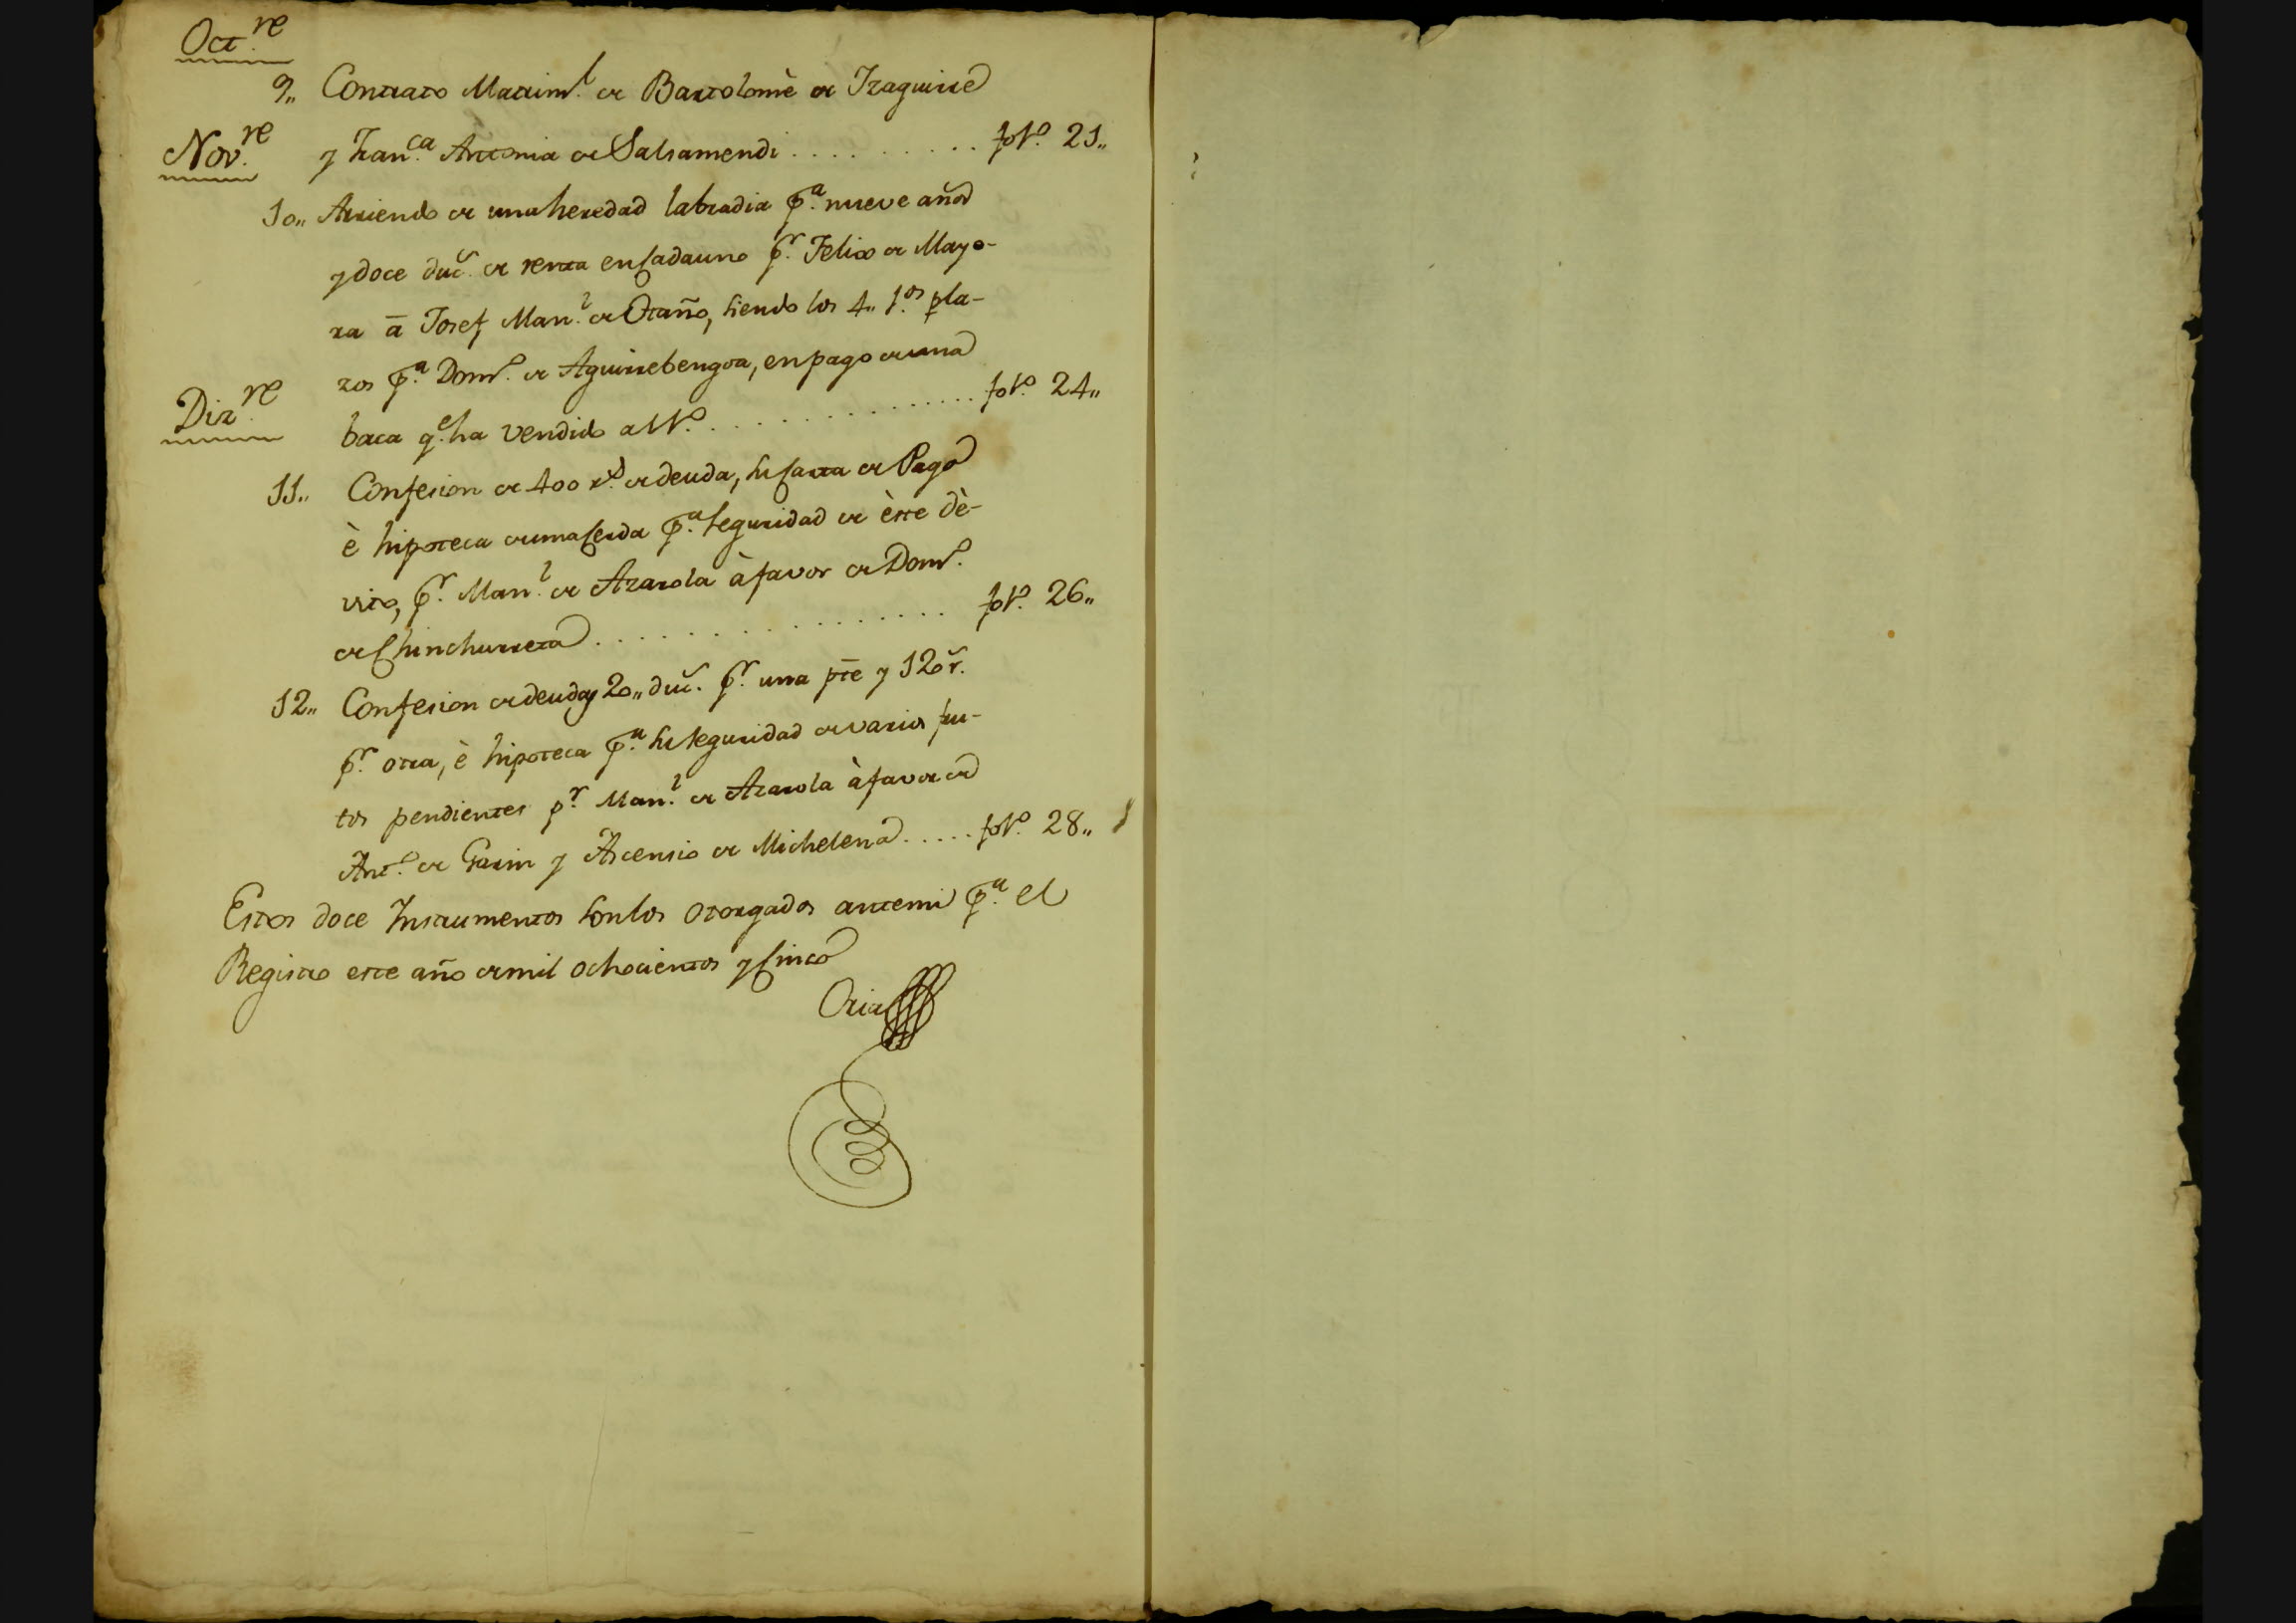 Oct.re
9,, Contrato Matrim.l de Bartolomè de Yzaguirre
Nov.re
y Fran.ca Antonia de Salsamendi . . . . . . . . . fol.o 21,,
10,, Arriendo de una heredad labradia p.a nueve años
y doce duc.s de renta en cada uno p.r Felix de Mayo-
ra à Josef Man.l de Otaño, siendo los 4,, 1.os pla-
zos p.a Dom.o de Aguirrebengoa, en pago de una
Diz.re
baca q.e ha vendido a
fol.o 24,,
11,, Confesion de 400 r.s de deuda, su carta de Pago
è hipoteca de una cerda p.a seguridad de èste dè-
vito, p.r Man.l de Azarola à favor de Dom.o
de Chinchurreta . . . . . . . . . . . . . . . fol.o 26,,
12,, Confesion de deuda 20,, duc.s p.r una pte y 120 r.s
p.r otra, è hipoteca p.a su seguridad de varios fru-
tos pendientes p.r Man.l de Azarola à favor de
Ant.o de Garin y Ascensio de Michelena . . . . . fol.o 28,,
Estos doce Instrumentos son los otorgados ante mi p.a el
Registro este año de mil ochocientos y cinco
Oria